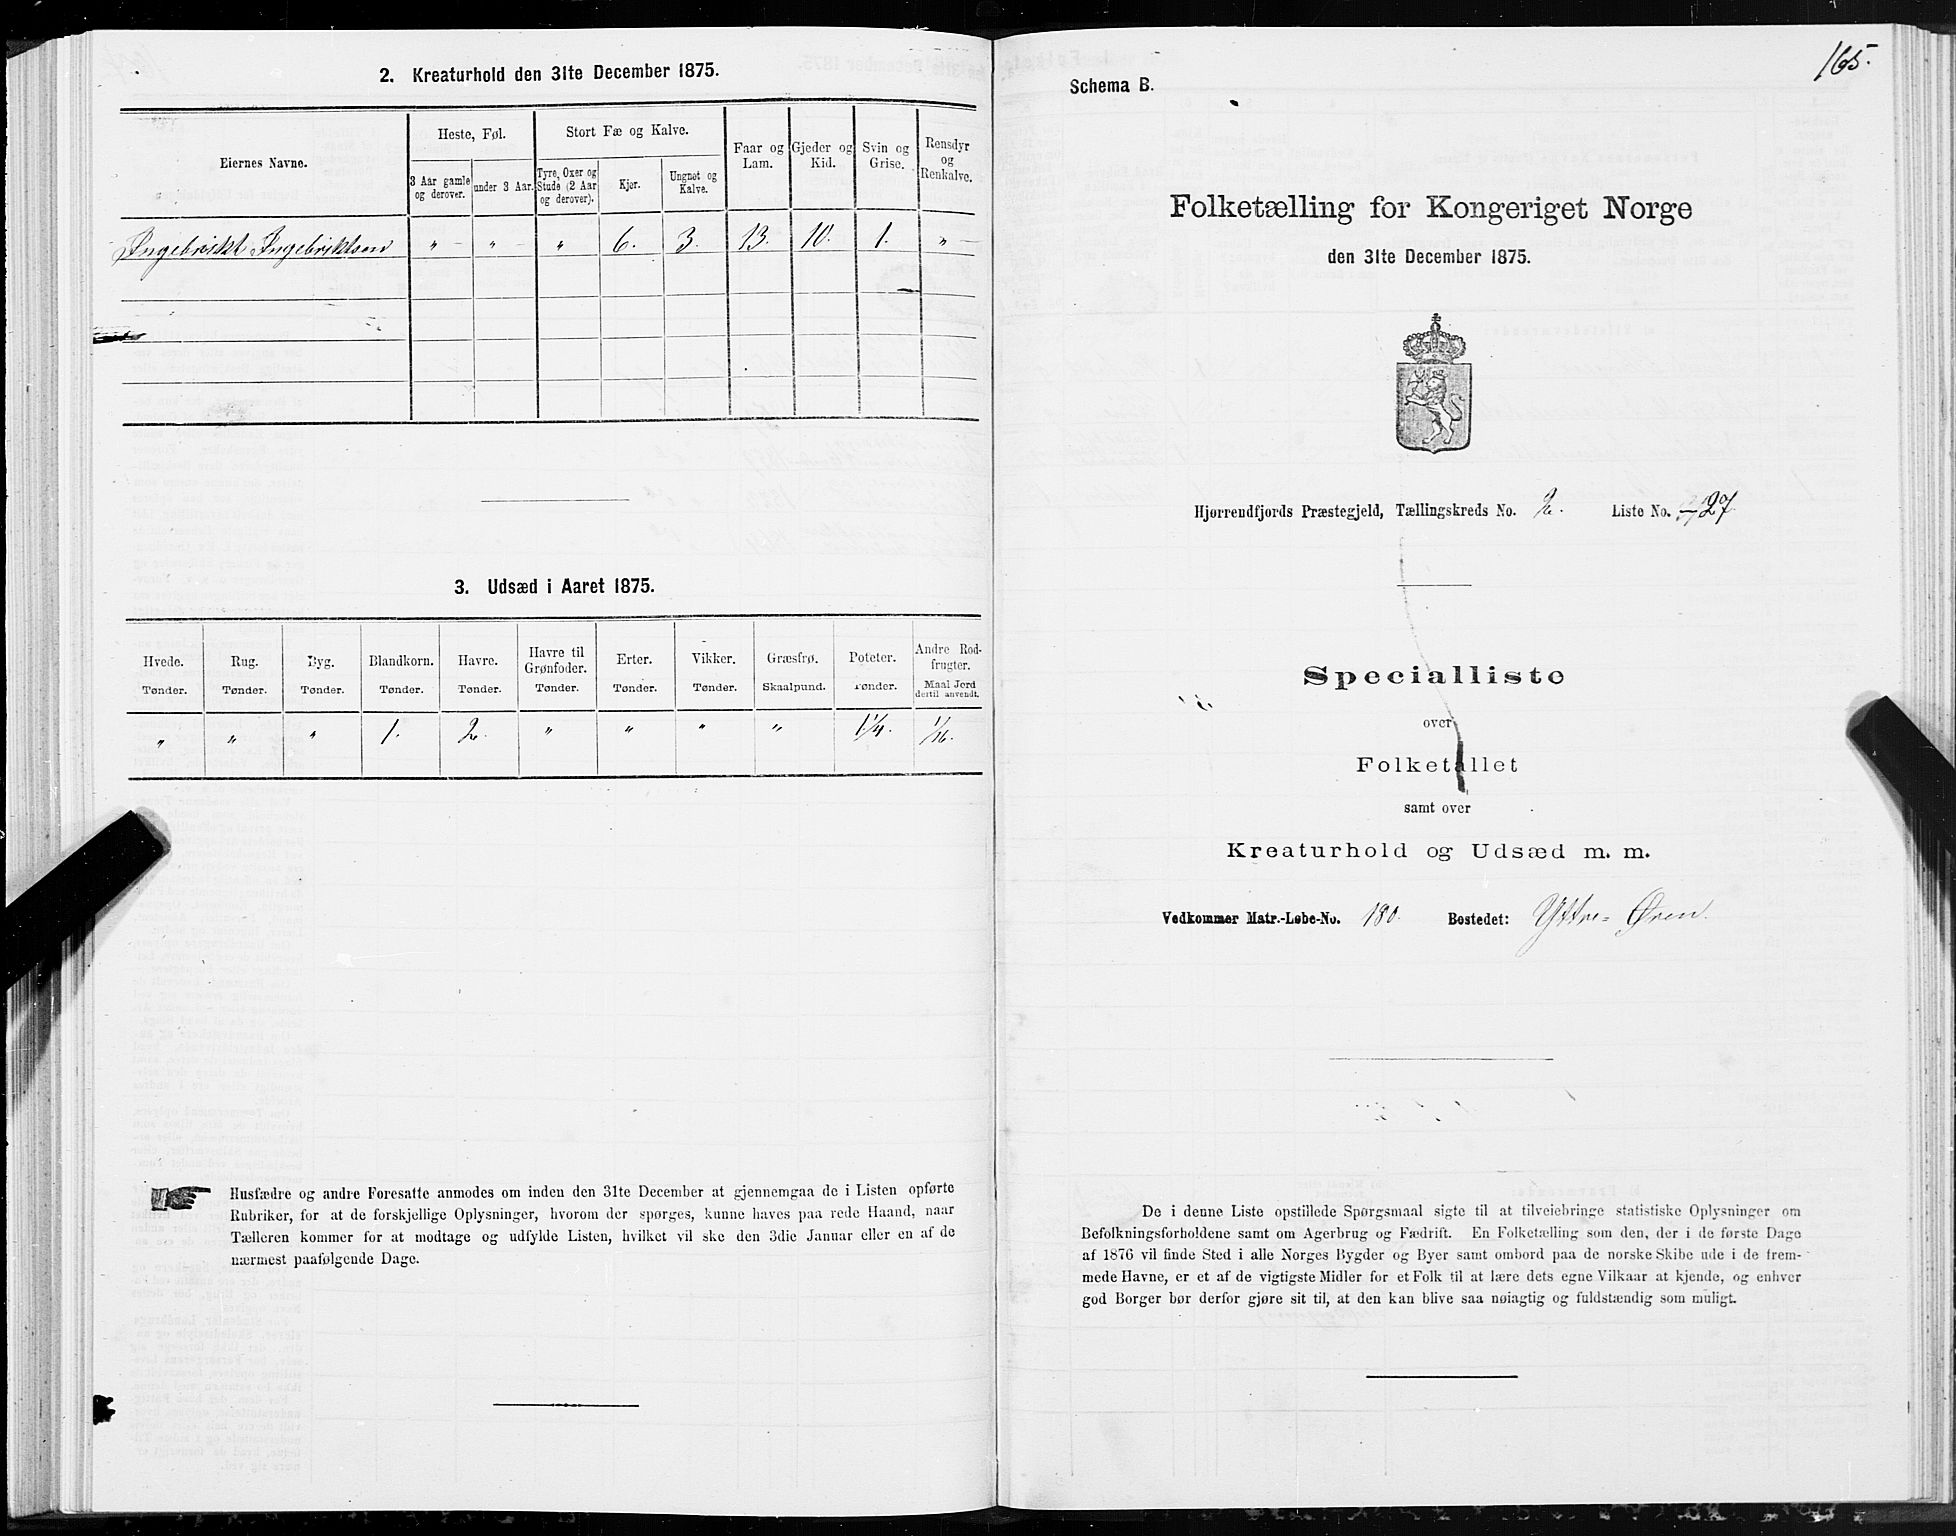 2. Kreaturhold den 31te December 1875.
Eiernes Navne.
Heste, Føl.
Stort Fæ og Kalve.
Faar og Lam.
Gjeder og Kid.
Svin og Grise.
Rensdyr og Renkalve.
3 Aar gamle og derover.
under 3 Aar.
Tyre, Oxer og Stude (2 Aar og derover).
Kjør.
Ungnøt og Kalve.
Ingebrikt Ingebriktsen " — " — " 6. 3. 13. 10. 1. " —
3. Udsæd i Aaret 1875.
Hvede. Rug. Byg. Blandkorn. Havre. Havre til Grønfoder. Erter. Vikker. Græsfrø. Poteter. Andre Rodfrugter.
Tønder. Tønder. Tønder. Tønder. Tønder. Tønder. Tønder. Tønder. Skaalpund. Tønder. Maal Jord dertil anvendt.
" " " 1. 2. " " " " 1 1/4. 1/16.
Husfædre og andre Foresatte anmodes om inden den 31te December at gjennemgaa de i Listen opførte
Rubriker, for at de forskjellige Oplysninger, hvorom der spørges, kunne haves paa rede Haand, naar
Tælleren kommer for at modtage og udfylde Listen, hvilket vil ske den 3die Januar eller en af de
nærmest paafølgende Dage.
165.
Schema B.
Folketælling for Kongeriget Norge
den 31te December 1875.
Hjørrendfjords Præstegjeld, Tællingskreds No. 2. Liste No. 27
Specialliste
over
Folketallet
samt over
Kreaturhold og Udsæd m. m.
Vedkommer Matr.-Løbe-No. 180. Bostedet: Yttre-Øren.
De i denne Liste opstillede Spørgsmaal sigte til at tilveiebringe statistiske Oplysninger om
Befolkningsforholdene samt om Agerbrug og Fædrift. En Folketælling som den, der i de første Dage
af 1876 vil finde Sted i alle Norges Bygder og Byer samt ombord paa de norske Skibe ude i de frem-
mede Havne, er et af de vigtigste Midler for et Folk til at lære dets egne Vilkaar at kjende, og enhver
god Borger bør derfor gjøre sit til, at den kan blive saa nøiagtig og fuldstændig som muligt.